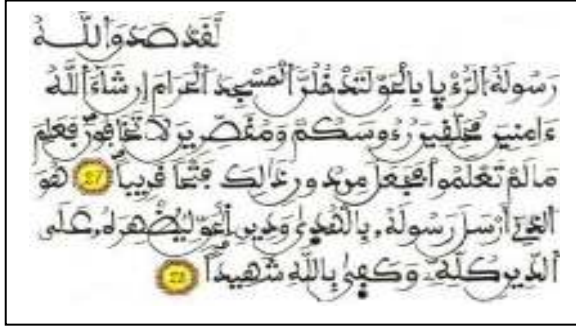 لَّقَدْ صَدَقَ ٱللَّهُ
رَسُولَهُ ٱلرُّءْيَا بِالْحَقِّ لَتَدْخُلُنَّ ٱلْمَسْجِدَ ٱلْحَرَامَ إِن شَآءَ ٱللَّهُ
ءَامِنِينَ مُحَلِّقِينَ رُءُوسَكُمْ وَمُقَصِّرِينَ لَا تَخَافُونَ فَعَلِمَ
مَا لَمْ تَعْلَمُوا فَجَعَلَ مِن دُونِ ذَٰلِكَ فَتْحًا قَرِيبًا 27 هُوَ
ٱلَّذِي أَرْسَلَ رَسُولَهُ بِالْهُدَىٰ وَدِينِ ٱلْحَقِّ لِيُظْهِرَهُ عَلَى
ٱلدِّينِ كُلِّهِ وَكَفَىٰ بِاللَّهِ شَهِيدًا 28